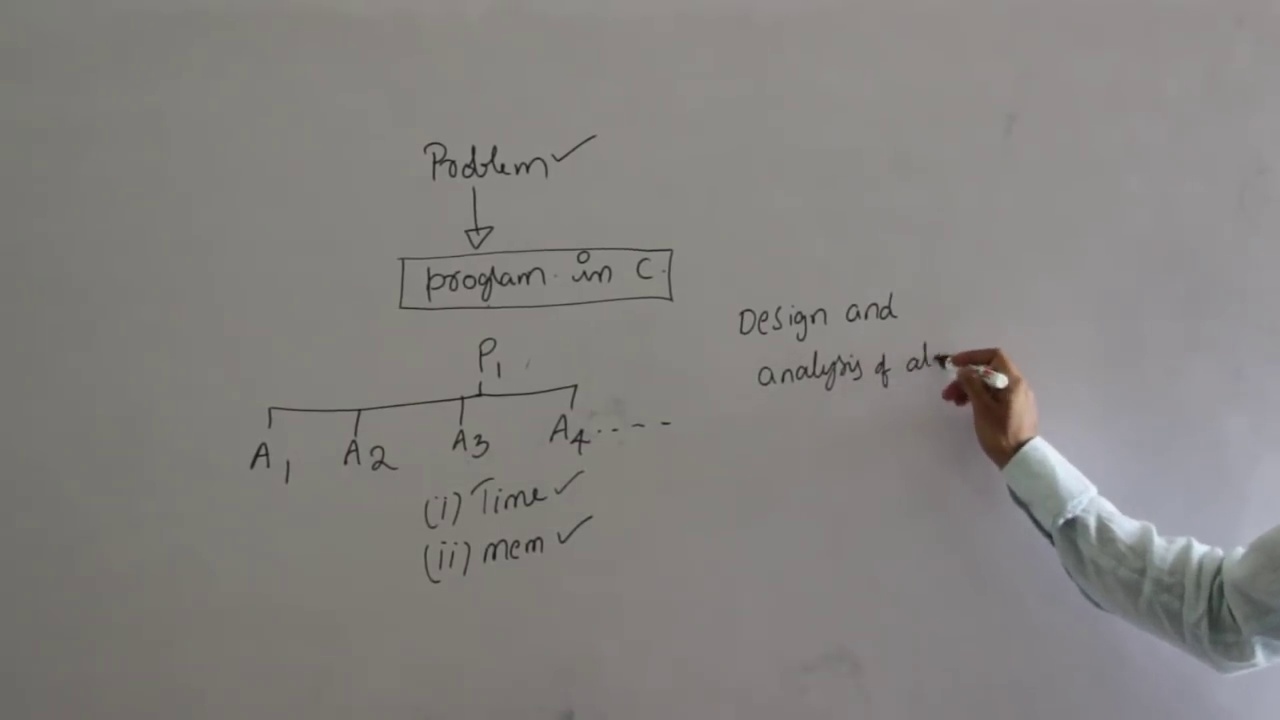 Problem ✓
program in C.
P1
A1 A2 A3 A4 ----
(i) Time ✓
(ii) mem ✓
Design and
analysis of al